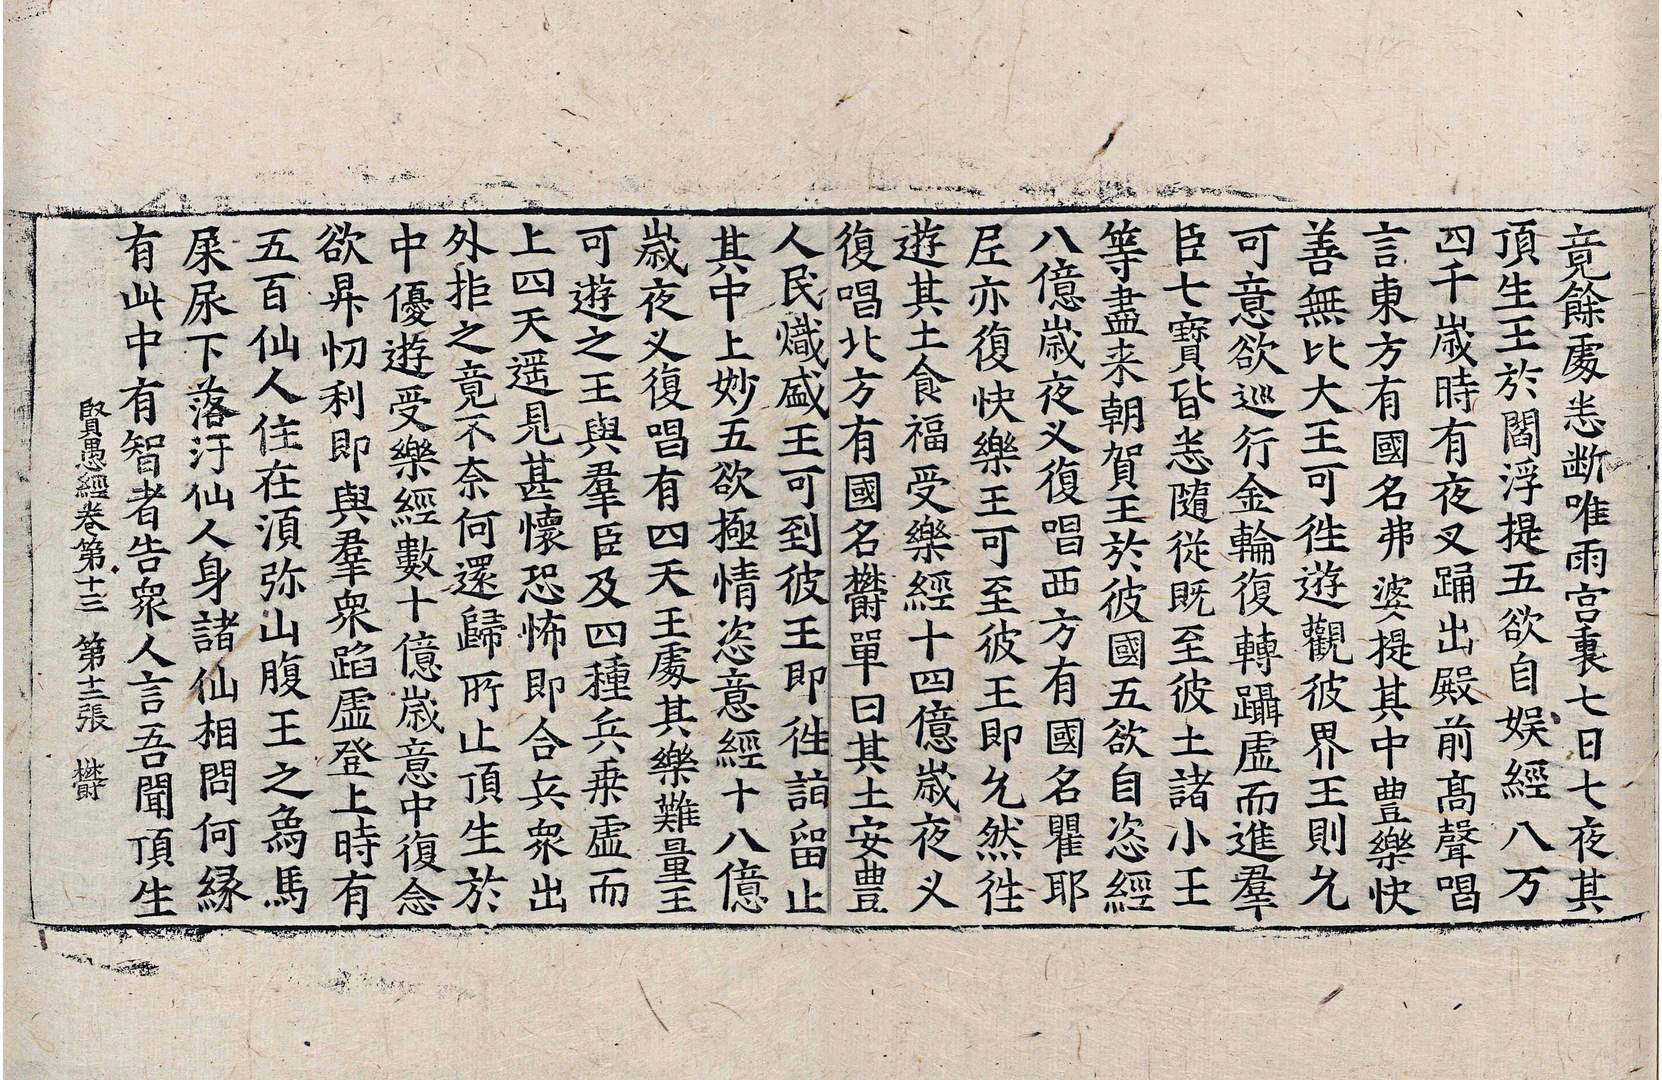 竟餘處悉断唯雨宫裏七日七夜其
頂生王於閻浮提五欲自娱經八万
四千歳時有夜叉踊出殿前髙聲唱
言東方有國名弗婆提其中豊樂快
善無比大王可徃遊觀彼界王則允
可意欲巡行金輪復轉躡虛而進羣
臣七寳皆悉隨從既至彼土諸小王
等盡来朝賀王於彼國五欲自恣經
八億歳夜叉復唱西方有國名瞿耶
尼亦復快樂王可至彼王即允然徃
遊其土食福受樂經十四億歳夜叉
復唱北方有國名欝單曰其土安豊
人民熾盛王可到彼王即徃詣留止
其中上妙五欲極情恣意經十八億
歳夜叉復唱有四天王處其樂難量王
可遊之王與羣臣及四種兵乗虛而
上四天遥見甚懷恐怖即合兵衆出
外拒之竟不奈何還歸所止頂生於
中優遊受樂經數十億歳意中復念
欲昇忉利即與羣衆蹈虛登上時有
五百仙人住在湏弥山腹王之象馬
屎尿下落汙仙人身諸仙相問何縁
有此中有智者告衆人言吾聞頂生
賢愚經卷第十三 第十二張 欝